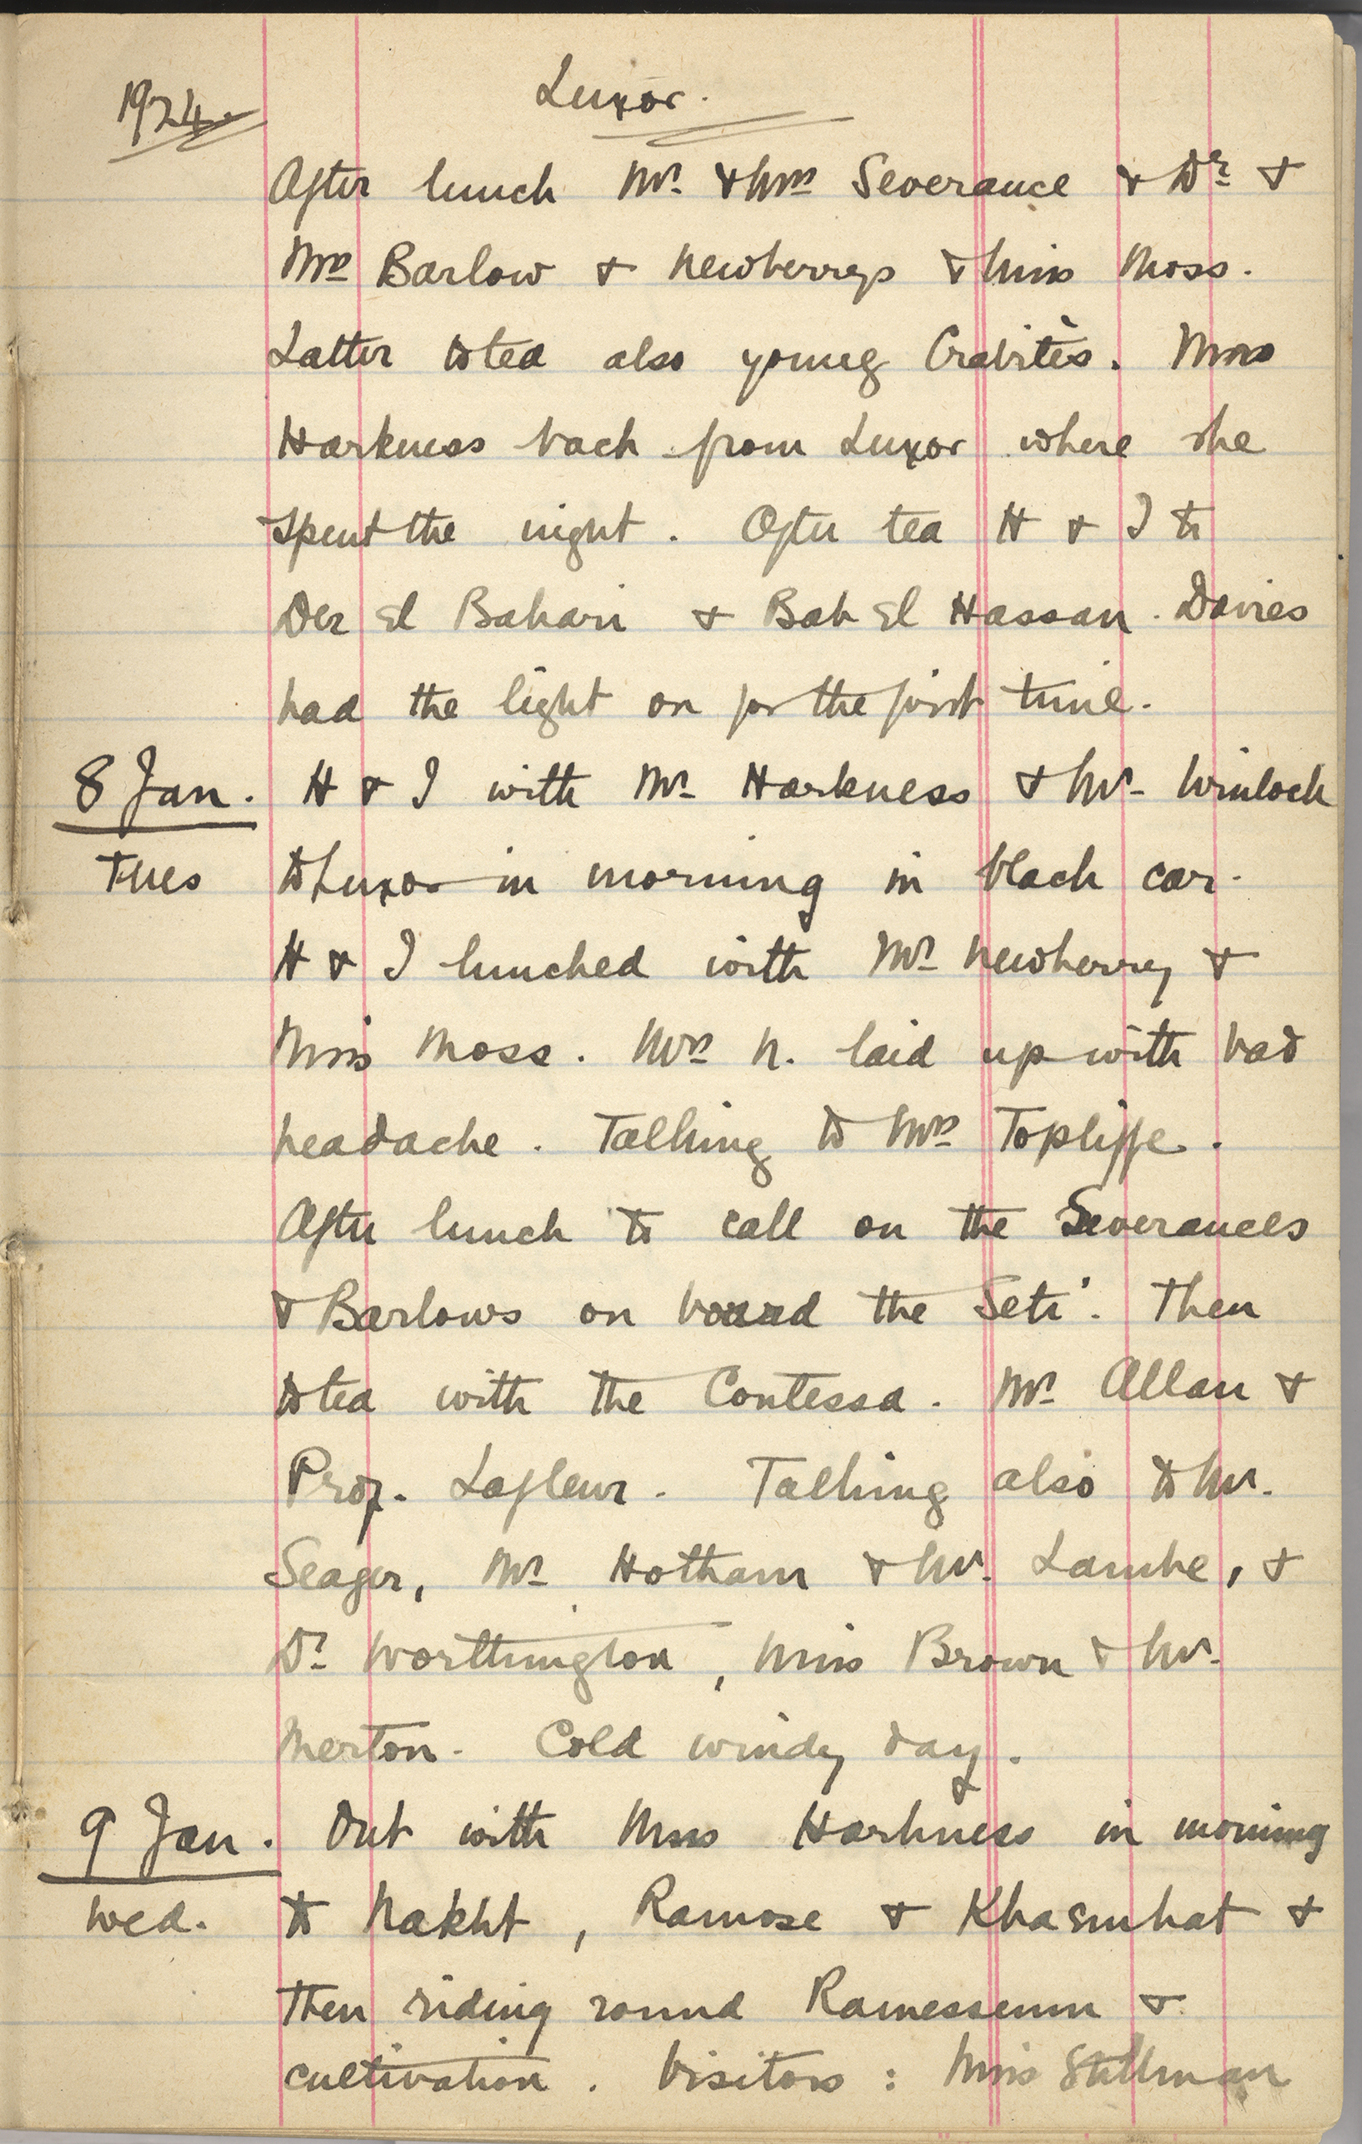 1924.
Luxor.
After lunch Mr. & Mrs Severance & Dr. &
Mrs Barlow & Newberrys & Miss Moss.
Latter to tea also young Crabitès. Mrs
Harkness back from Luxor where she
spent the night. After tea H & I to
Der el Bahari & Bab el Hassan. Davies
had the light on for the first time.
8 Jan. H & I with Mr. Harkness & Mr. Winlock
Tues to Luxor in morning in black car.
H & I lunched with Mr. Newberry &
Miss Moss. Mrs N. laid up with bad
headache. Talking to Mrs Topliffe.
After lunch to call on the Severances
& Barlows on board the 'Seti'. Then
to tea with the Contessa. Mr. Allan &
Prof. Lafleur. Talking also to Mr.
Seager, Mr. Hotham & Mr. Lambe, &
Dr. Worthington, Miss Brown & Mr.
Merton. Cold windy day.
9 Jan. Out with Mrs Harkness in morning
Wed. to Nakht, Ramose & Khaemhat &
then riding round Ramesseum &
cultivation. Visitors: Miss Stillman